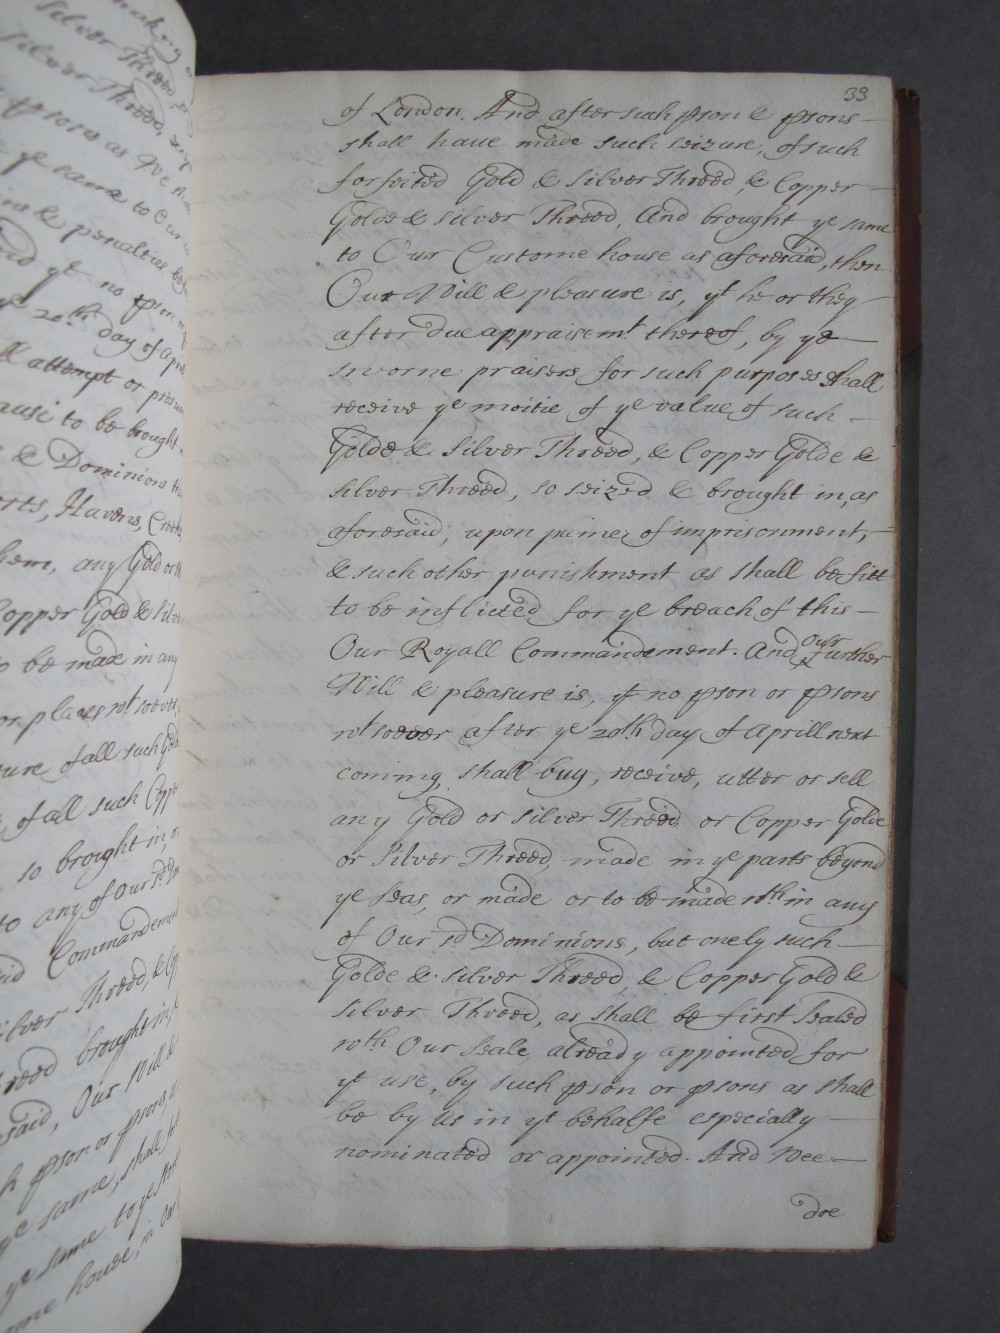 making
Silver Threed, or
Silver Threed, &
psons as We
ye same to Our
& penalties
ye no pson
20th. day of Aprill
attempt or presume
cause to be brought
& Dominions
orts, Havens, Creeks
hem, any Gold or
Copper Gold & Silver
to be made in any
or places wtsoever,
ure of all such Gold
of all such Copper
so brought in, or
to any of Our sd. Dom
aid Commandement
Silver Threed, & Cop
Threed brought in,
said, Our Will &
h pson or psons,
ye same, shall
ye same to ye
ome house, in Our
33
of London. And after such pson & psons
shall have made such seizure, of such
forfeited Gold & Silver Threed, & Copper
Golde & Silver Threed, And brought ye same
to Our Custome house as aforesaid, then
Our Will & pleasure is, yt he or they
after due appraisemt. thereof, by ye
sworne praisers for such purposes shall
receive ye moitie of ye value of such
Golde & Silver Threed, & Copper Golde &
Silver Threed, so seized & brought in, as
aforesaid, upon paine of imprisonment,
& such other punishment as shall be fitt
to be inflicted for ye breach of this
Our Royall Commandement. And our further
Will & pleasure is, yt no pson or psons
wtsoever after ye 20th. day of Aprill next
coming, shall buy, receive, utter or sell
any Gold or Silver Threed or Copper Golde
or Silver Threed, made in ye parts beyond
ye Seas, or made or to be made wthin any
of Our sd Dominions, but onely such
Golde & Silver Threed, & Copper Gold &
Silver Threed, as shall be first Sealed
wth Our Seale, already appointed for
yt use, by such pson or psons as shall
be by Us in yt behalfe especially
nominated or appointed. And Wee
doe